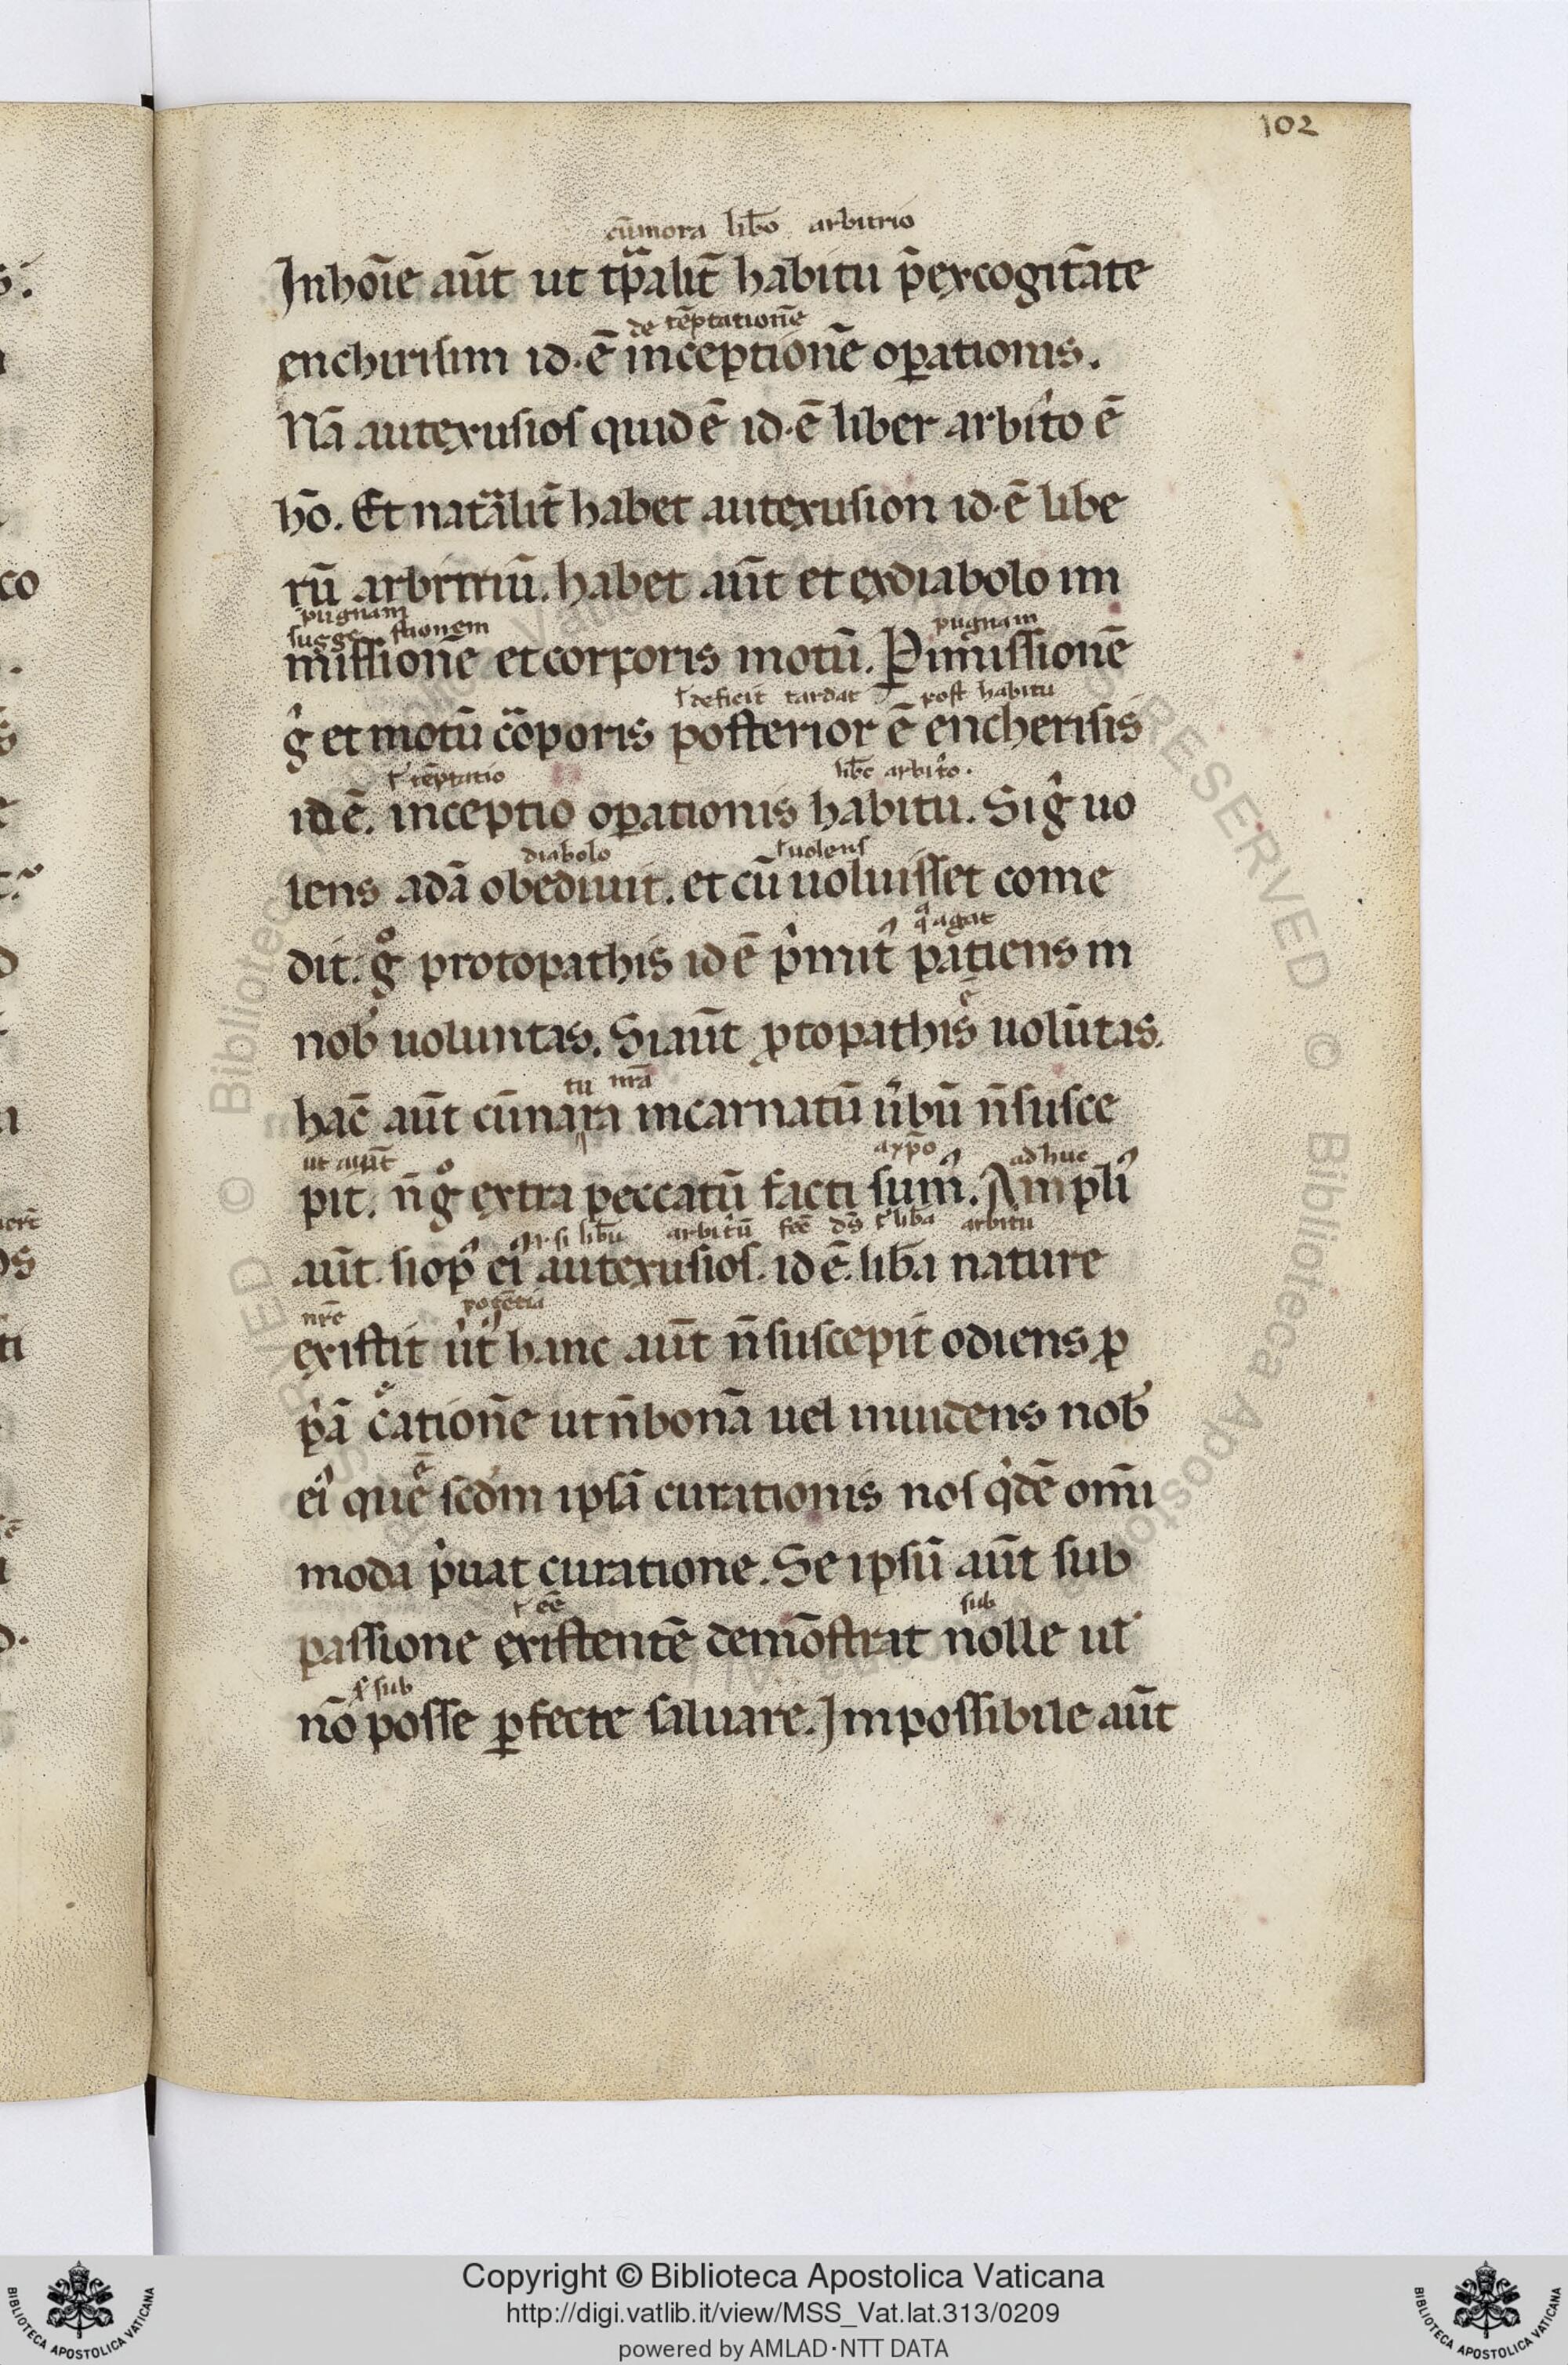 102
cūmora lib̄o arbitrio
Inhoīe aūt ut tp̄alit̄ habitu p̄excogitāte
de tēptationē
enchirisim id·ē inceptionē oꝑationis.
Nā autexusios quid ē id·ē liber arbit̄o ē
hō. Et natālit̄ habet autexusion id·ē libe
rū arbitriū. habet aūt et exdiabolo im
pugnam
suggestionem pugnam
missionē et corporis motū. P immissionē
ł deficit tardat post habitu
g̾ et motū cōporis posterior ē encherisis
ł tēptatio lib̄e arbit̄o.
id ē. inceptio oꝑationis habitu. Si g̾ uo
diabolo ł uolens
lens adā obediuit. et cū uoluisset come
q̄ agat
dit. g̊ protopathis id ē p̾mit̄ patiens in
ē
nob̾ uoluntas. Si aūt ꝓtopathis uolūtas.
tu nr̄a
hāc aūt cūnara incarnatū u̾bū n̄ susce
ut aiūt axp̄o adhuc
pit. n̄ g̊ extra peccatū facti sum̾. Ampli̾
q̾r si lib̄u arbit̄ū fec̄ d̄s ł lib̄a arbit̾u
aūt. si op̾ ei̾ autexusios. id ē. lib̄a nature
nr̄e potētia
existit u̾t̾ hanc aūt n̄ suscepit odiens ꝓ
p̾ā c̄ationē ut n̄bonā uel inuidens nob̾
ei̾ que ē scdm ipsā curationis nos q̾dē om̄i
moda p̾uat curatione. Se ipsū aūt sub
ł eē sub
passione existentē demōstrat nolle ut̾
ł sub
nō posse ꝑfecte saluare. Impossibile aūt
© Biblioteca Apostolica Vaticana
Copyright © Biblioteca Apostolica Vaticana
http://digi.vatlib.it/view/MSS_Vat.lat.313/0209
powered by AMLAD·NTT DATA
BIBLIOTECA APOSTOLICA VATICANA
BIBLIOTECA APOSTOLICA VATICANA